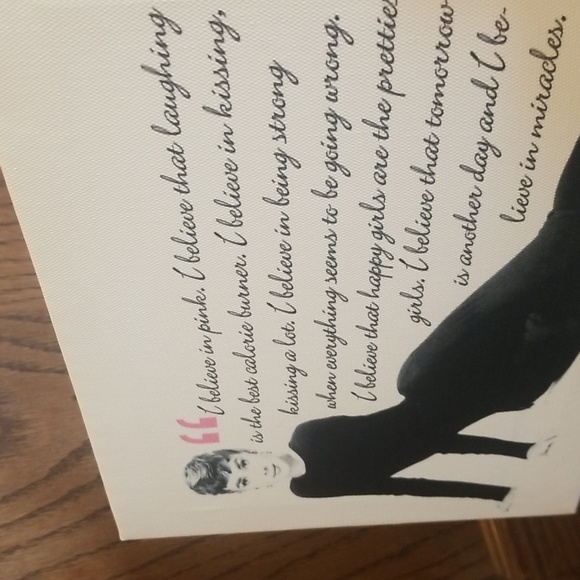 “
I believe in pink. I believe that laughing
is the best calorie burner. I believe in kissing,
kissing a lot. I believe in being strong
when everything seems to be going wrong.
I believe that happy girls are the pretties
girls. I believe that tomorrow
is another day and I be-
lieve in miracles.